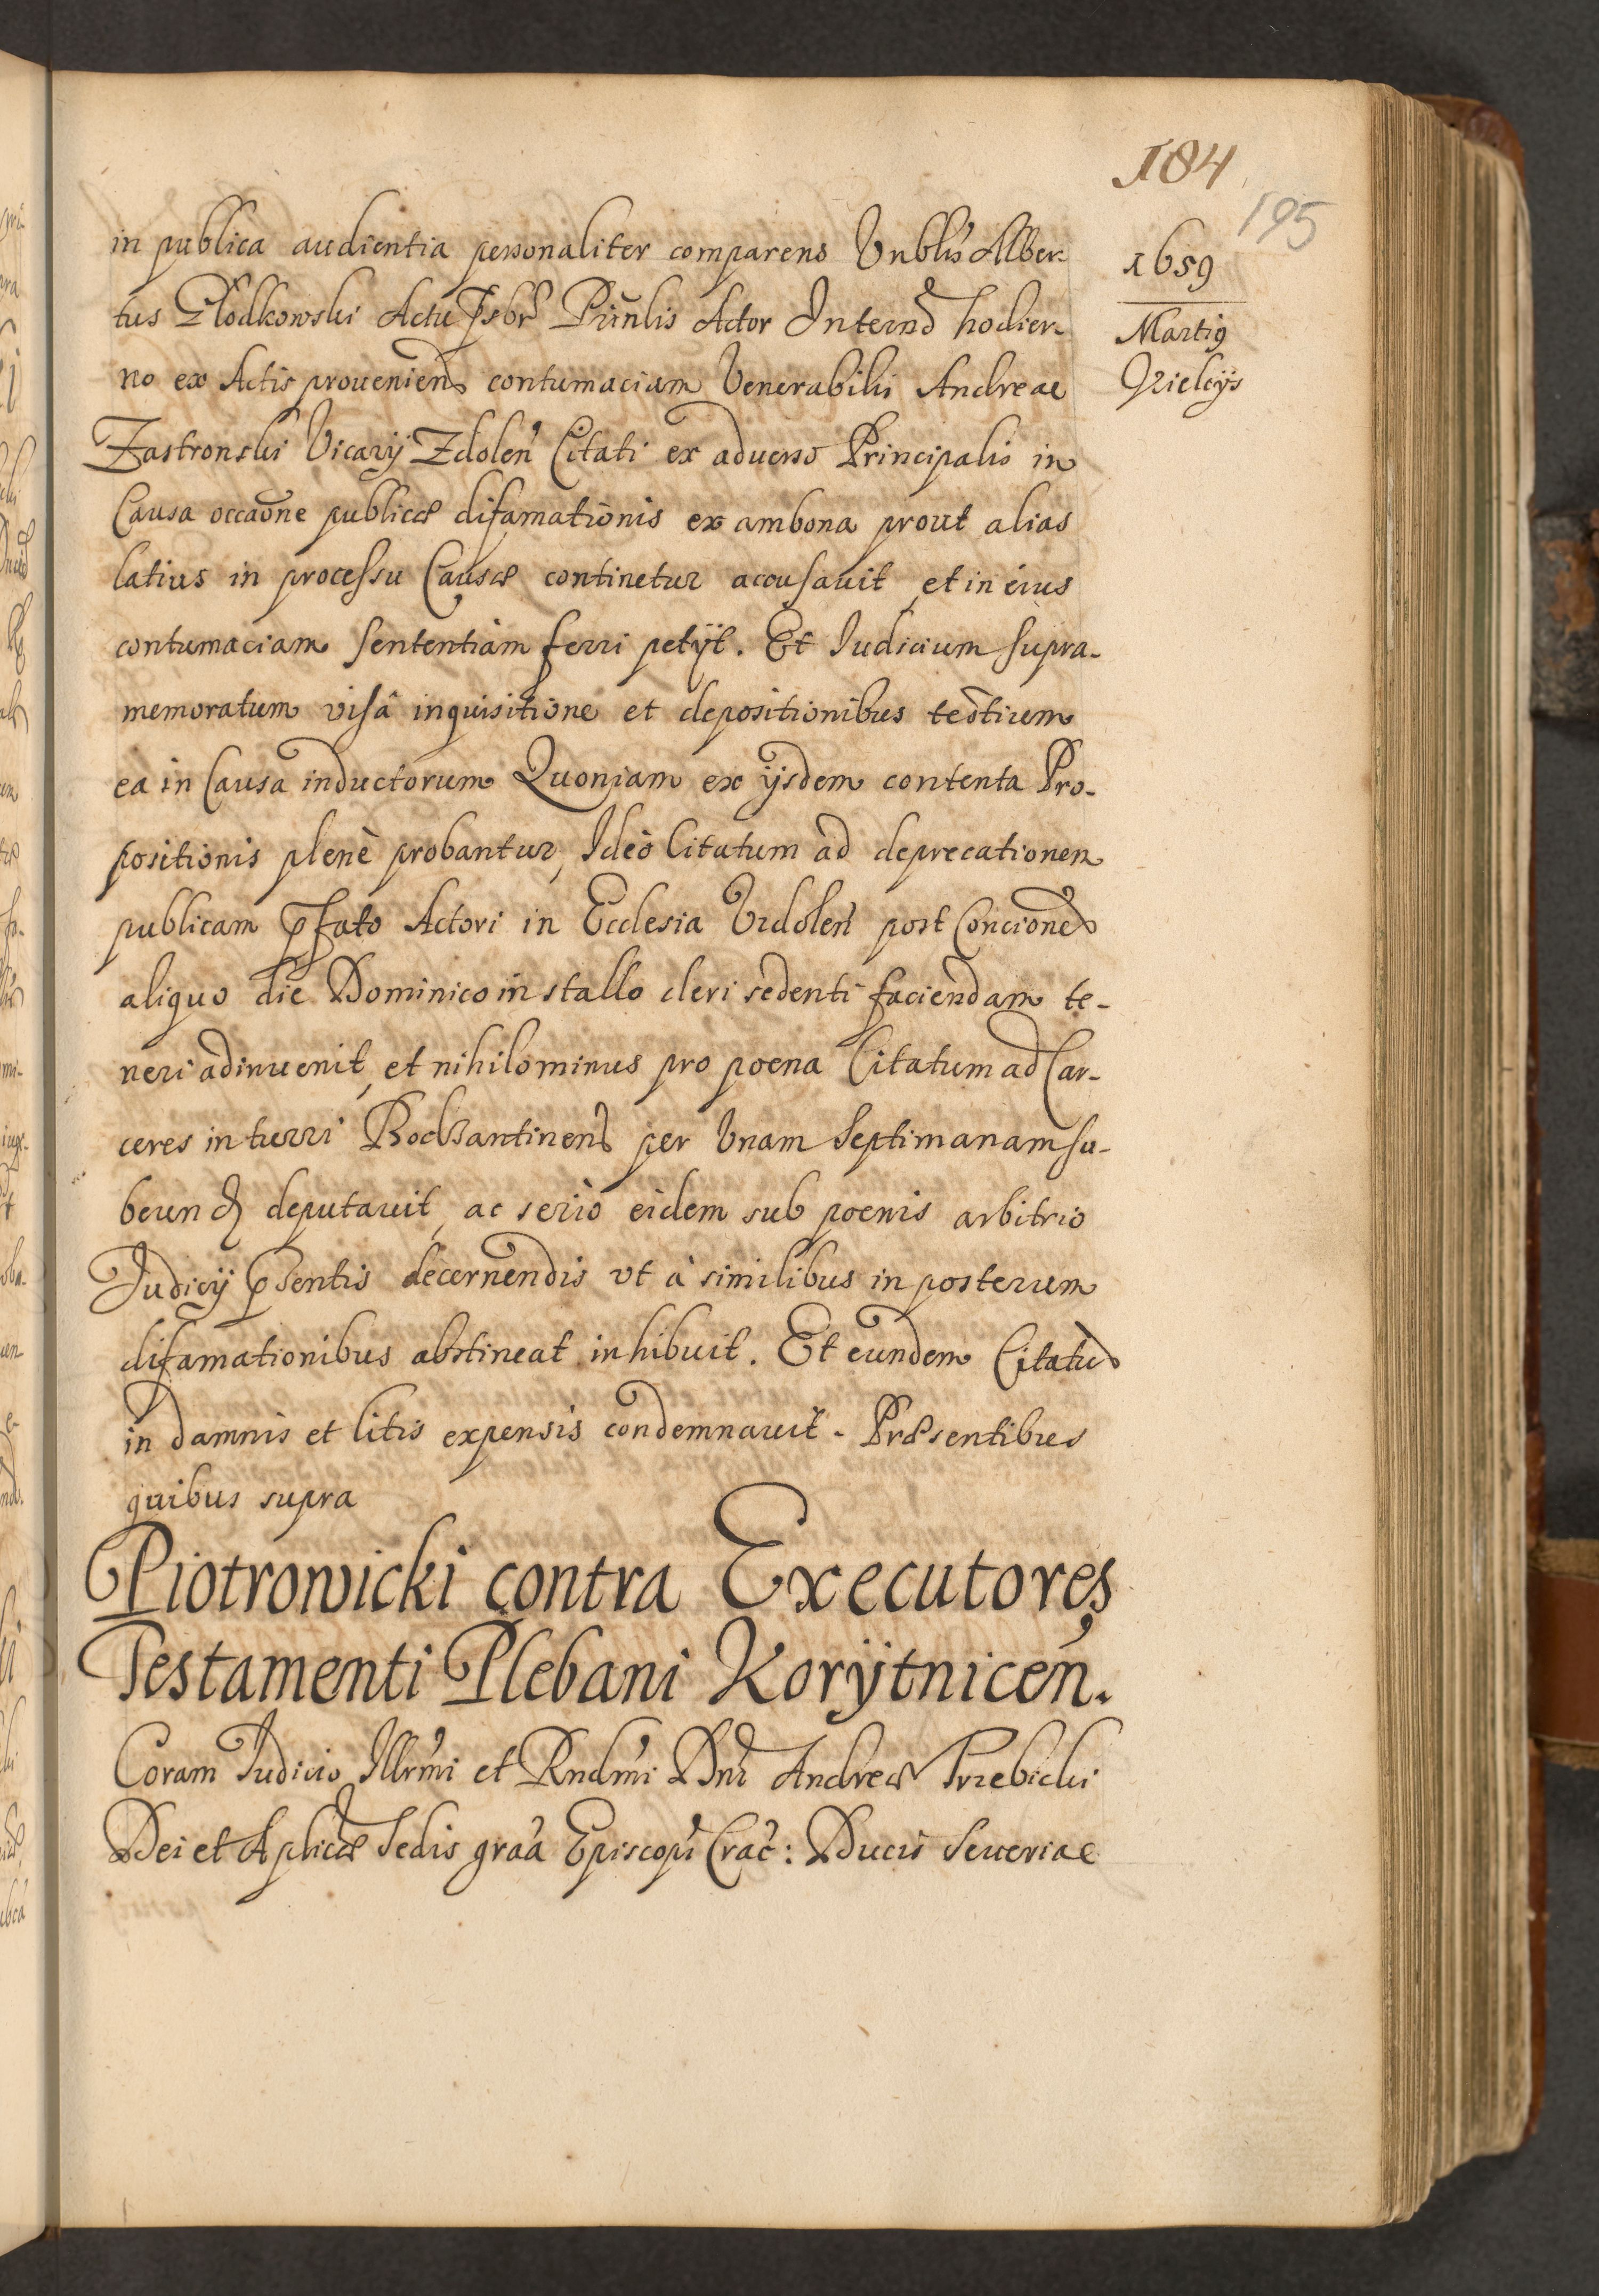 184
195
1659
Martig
Kielcijs
in publica audientia personaliter comparens Vnblis Alber-
tus Płodkowski Actu Psbr Prinlis Actor Internd hodier-
no ex Actis proueniens contumaciam Venerabilii Andreae
Zastronski Vicarij Zdolen Citati ex aduerso Principalis in
Causa occaone publicæ difamationis ex ambona prout alias
latius in processu Causæ continetur accusauit, et in eius
contumaciam sententiam ferri petijt. Et Iudicium supra-
memoratum visâ inquisitione et depositionibus testium
ea in Causa inductorum Quoniam ex ijsdem contenta Pro-
positionis plenè probantur, Ideò Citatum ad deprecationem
publicam pfato Actori in Ecclesia Vzdolen post Concione
aliquo die Dominico in stallo cleri sedenti faciendam te-
neri adinuenit, et nihilominus pro poena Citatum ad Car-
ceres in turri Bodzantinen per Vnam Septimanam su-
beund deputauit, ac seriò eidem sub poenis arbitrio
Iudicij psentis decernendis vt à similibus in posterum
difamationibus abstineat inhibuit. Et eundem Citatu
in damnis et litis expensis condemnauit. Præsentibus
quibus supra
Piotrowicki contra Executores
Testamenti Plebani Korÿtnicen.
Coram Iudicio Illrmi et Rndmi Dni Andreæ Trzebicki
Dei et Aplicæ Sedis graa Episcopi Crac: Ducis Seueriae